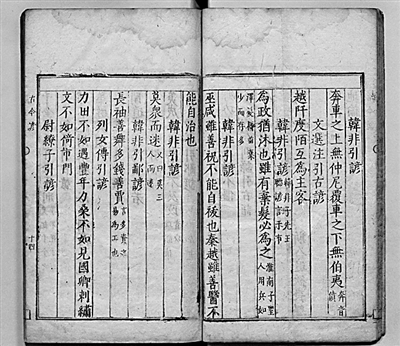 韓非引諺
奔車之上無仲尼覆車之下無伯夷
文選注引古諺
越阡度陌互為主客
韓非引諺
為政猶沐也雖有棄髮必為之
韓非引諺
巫咸雖善祝不能自祓也秦越雖善醫不
能自治也
韓非引鄙諺
莫衆而迷
韓非引諺
長袖善舞多錢善賈
列女傳引諺
力田不如遇豐年力桑不如見國卿刺繡
文不如倚市門
尉繚子引諺